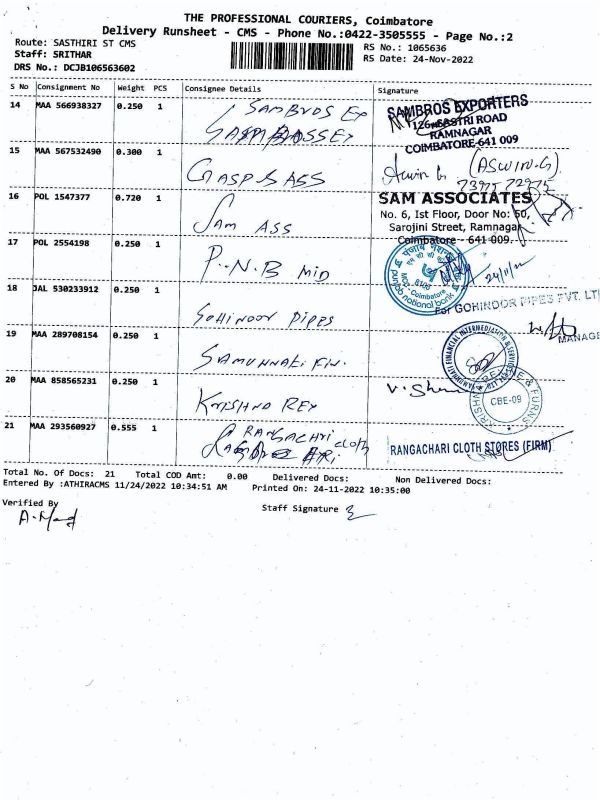 THE PROFESSIONAL COURIERS, Coimbatore
Delivery Runsheet - CMS - Phone No.:0422-3505555 - Page No.:2
Route: SASTHIRI ST CMS
Staff: SRITHAR
DRS No.: DCJB106563602
RS No.: 1065636
RS Date: 24-Nov-2022
S No Consignment No Weight PCS Consignee Details Signature
14 MAA 566938327 0.250 1 SAMBROS Ex
SAMBROS EXPORTERS
126, SASTRI ROAD
RAMNAGAR
COIMBATORE-641 009
15 MAA 567532490 0.300 1
(ASWIN.G)
16 POL 1547377 0.720 1 SAM ASS
SAM ASSOCIATES
No. 6, Ist Floor, Door No: 50,
Sarojini Street, Ramnagar
Coimbatore - 641 009.
17 POL 2554198 0.250 1 P.N.B MID
पंजाब नैशनल
8106
MID - Coimbatore
punjab national bank
24/11/22
18 JAL 530233912 0.250 1 GOHINOOR PIPES
For GOHINOOR PIPES PVT. LT
MANAGE
19 MAA 289708154 0.250 1 SAMUNNATI FIN.
SAMUNNATI FINANCIAL INTERMEDIATION & SERVICES
20 MAA 858565231 0.250 1 KRISHNO REX
CBE-09
21 MAA 293560927 0.555 1 RANGACHARI Cloth
RANGACHARI CLOTH STORES (FIRM)
Total No. Of Docs: 21 Total COD Amt: 0.00 Delivered Docs: Non Delivered Docs:
Entered By :ATHIRACMS 11/24/2022 10:34:51 AM Printed On: 24-11-2022 10:35:00
Verified By
Staff Signature